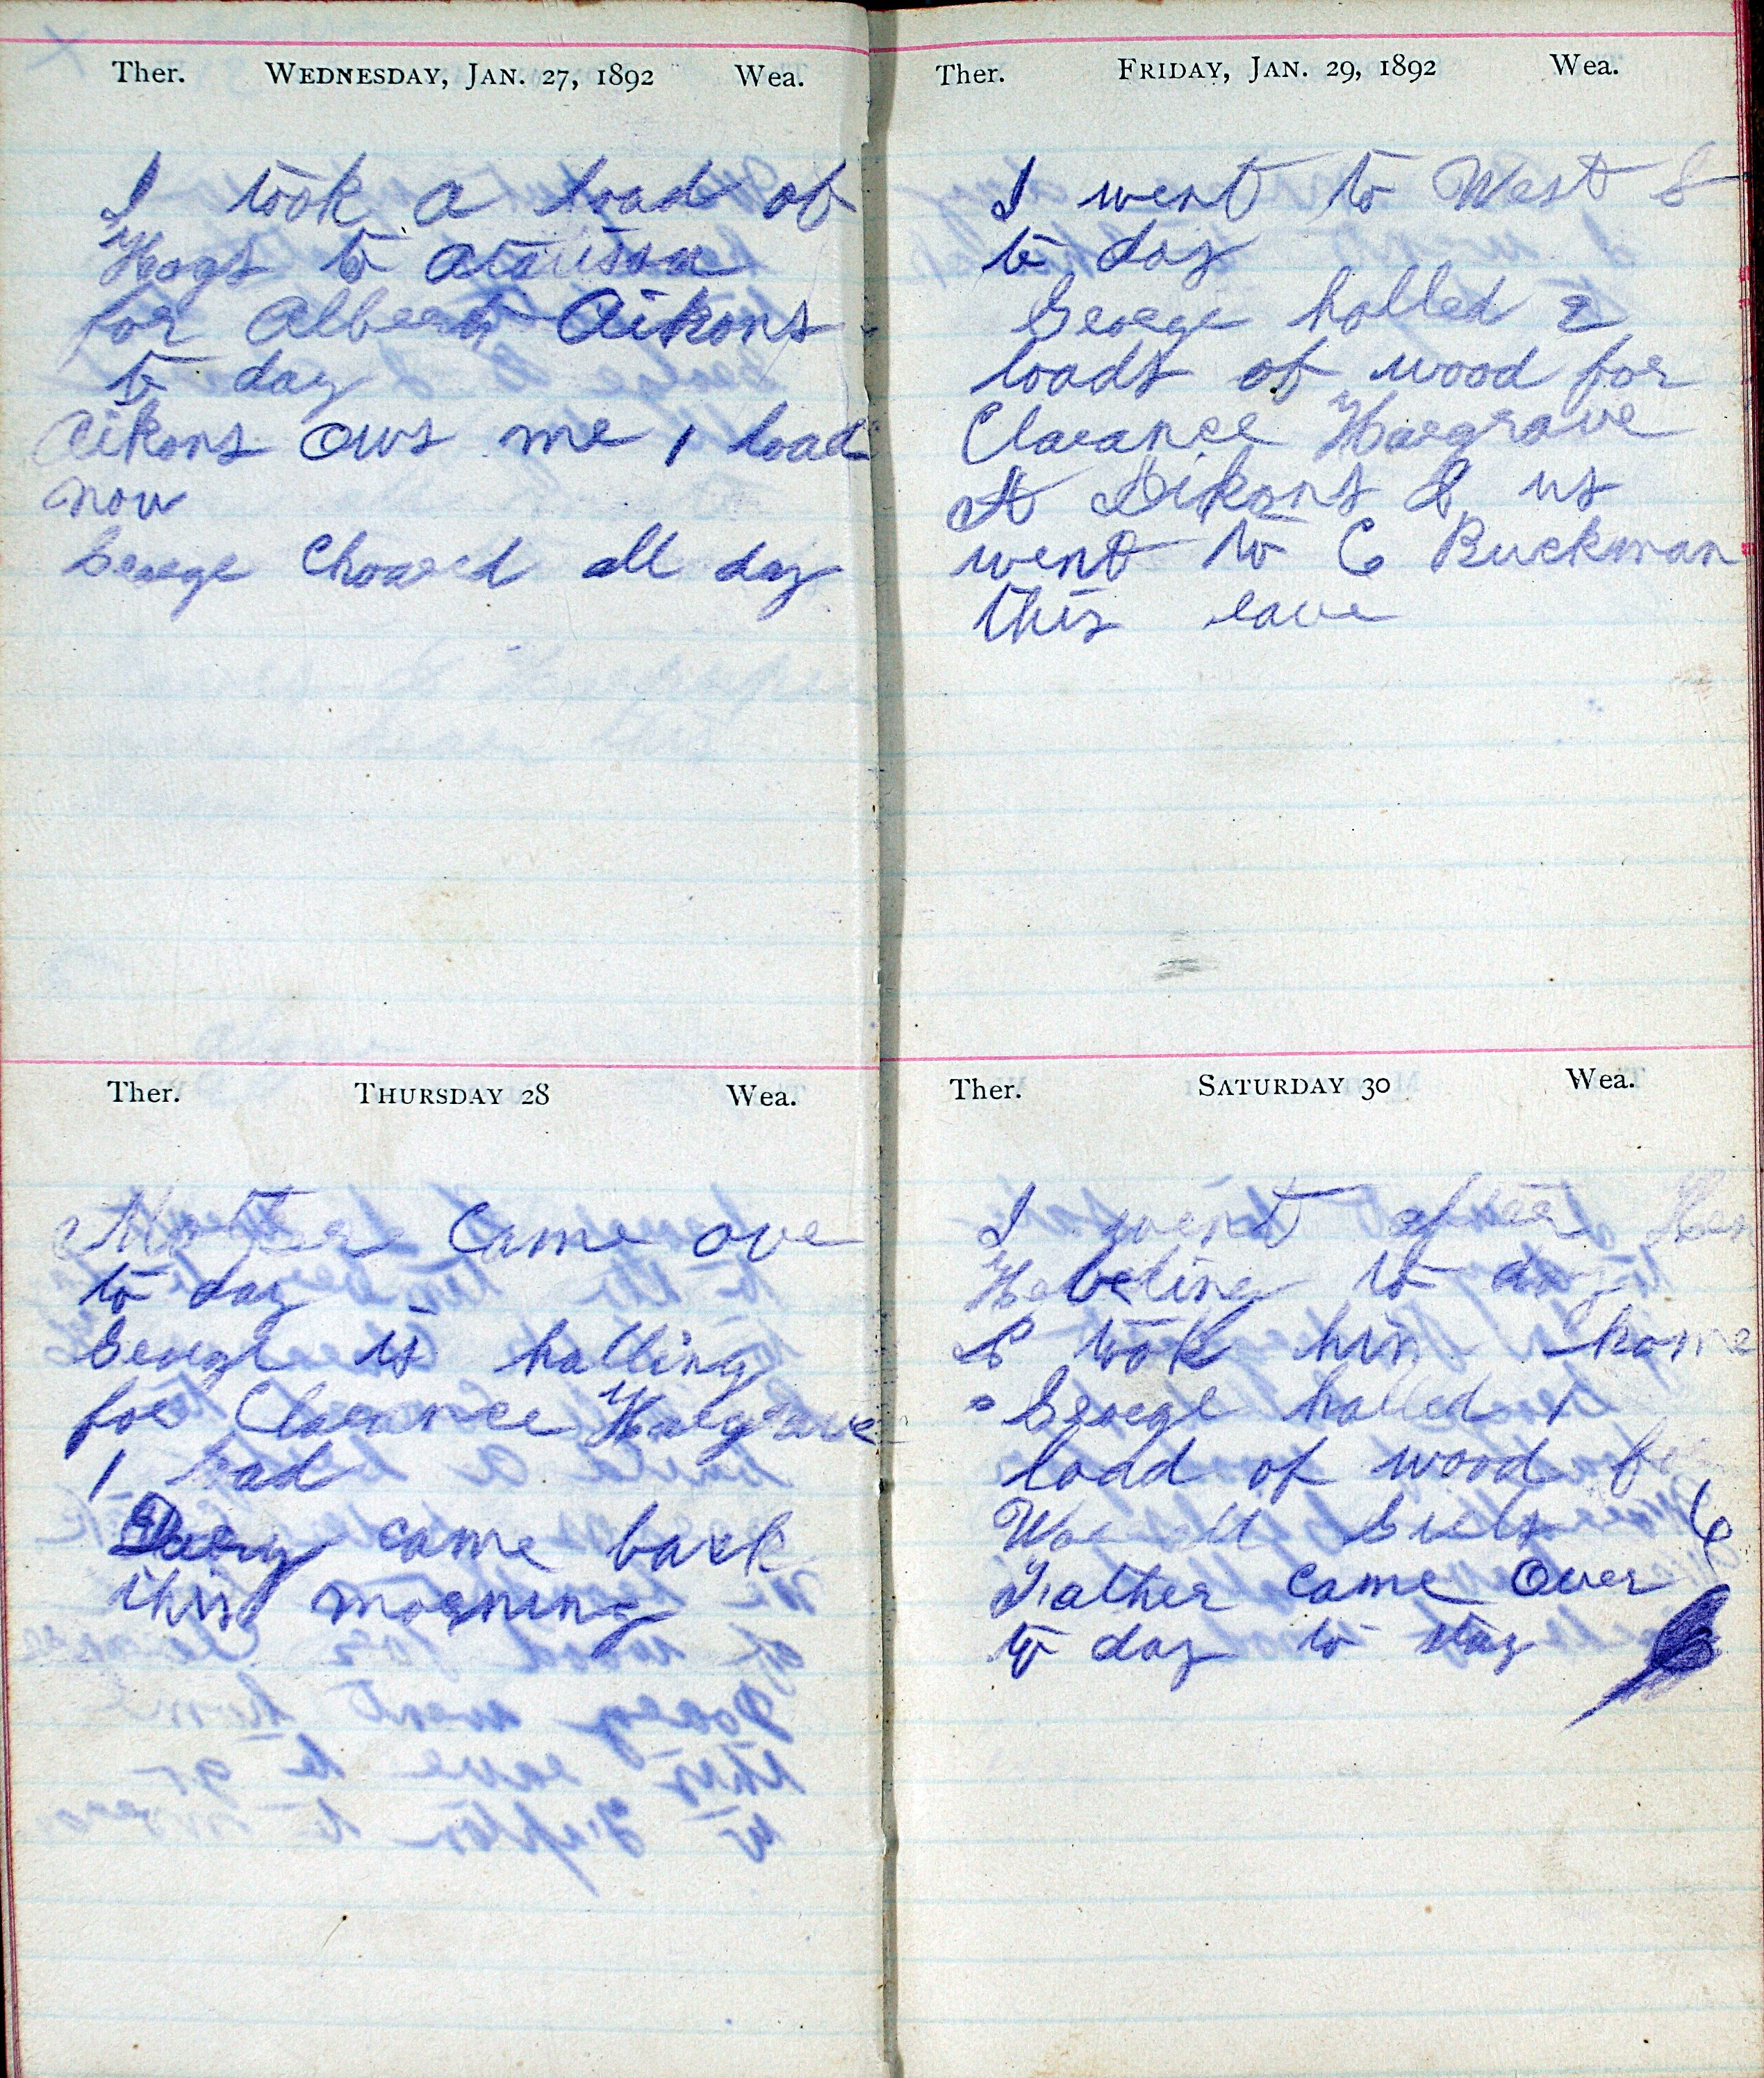 Ther. WEDNESDAY, JAN. 27, 1892 Wea.
I took a load of
Hogs to
for Albert Aikons
to day
Aikons ows me 1 load
now
George Choared all day
Ther. THURSDAY 28 Wea.
Mother Came ove
to day
George is halling
for Clarance Hargrave
1 load
came back
this morning
Ther. FRIDAY, JAN. 29, 1892 Wea.
I went to West S
to day
George halled 2
loads of wood for
Clarance Hargrave
A Aikons & us
went to C Buckman
this eave
Ther. SATURDAY 30 Wea.
I went after
to day
& took him home
George halled 1
load of wood
Father came Over
to day to stay